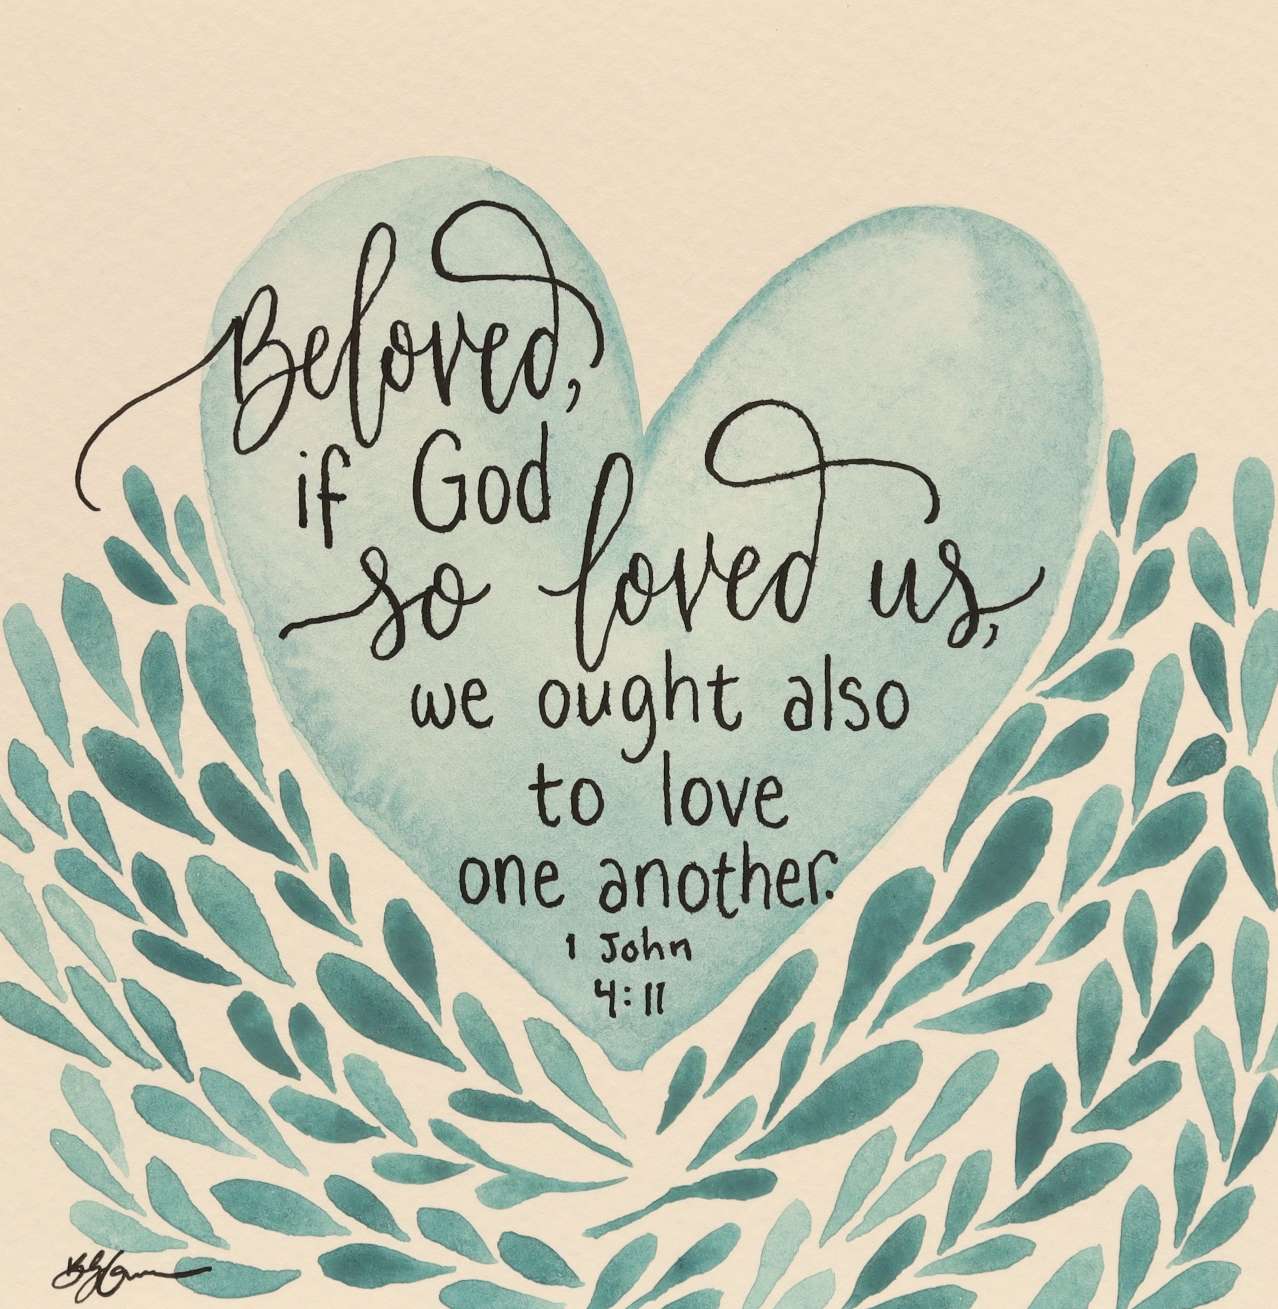 Beloved,
if God
so loved us,
we ought also
to love
one another.
1 John
4:11